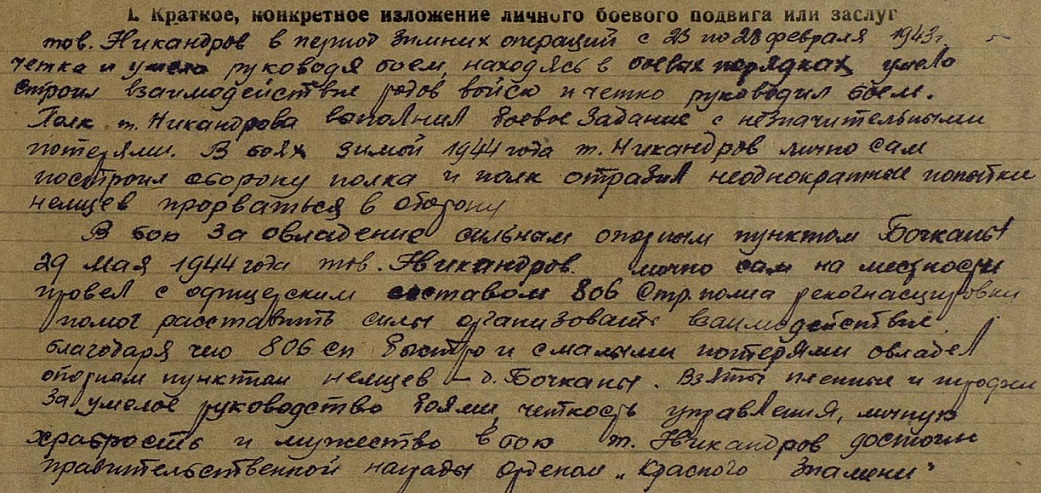 I. Краткое, конкретное изложение личного боевого подвига или заслуг
тов. Никандров в период зимних операций с 23 по 28 февраля 1943г.
четко и умело руководя боем, находясь в боевых порядках, умело
строил взаимодействие родов войск и четко руководил боем.
Полк т. Никандрова выполнил боевое задание с незначительными
потерями. В боях зимой 1944 года т. Никандров лично сам
построил оборону полка и полк отразил неоднократные попытки
немцев прорваться в оборону
В бою за овладение сильным опорным пунктом Бочканы
29 мая 1944 года тов. Никандров лично сам на местности
провел с офицерским составом 806 Стр. полка рекогнасцировки
помог расставить силы организовать взаимодействие.
благодаря чего 806 сп быстро и с малыми потерями овладел
опорным пунктом немцев – д. Бочканы. Взяты пленные и трофеи
За умелое руководство боями, четкость управления, личную
храбрость и мужество в бою т. Никандров достоин
правительственной награды орденом „Красного Знамени"